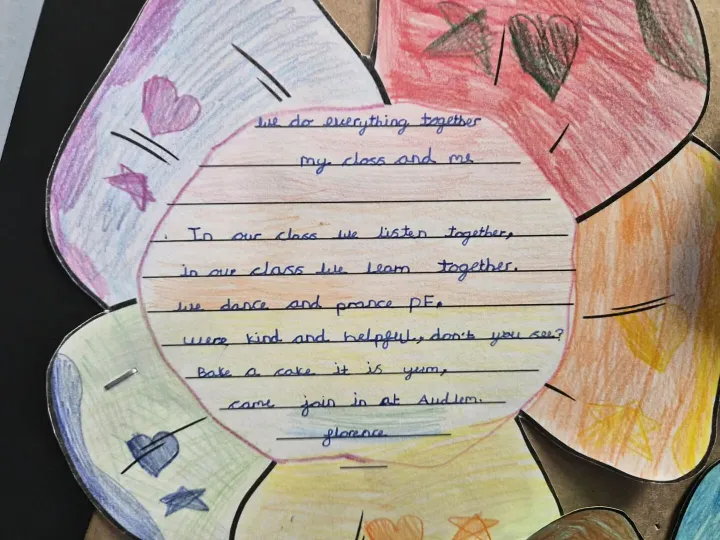 we do everything together
my class and me
In our class we listen together,
in our class we learn together.
we dance and prance PE.
were kind and helpful, don't you see?
Bake a cake it is yum,
come join in at Audlem.
florence